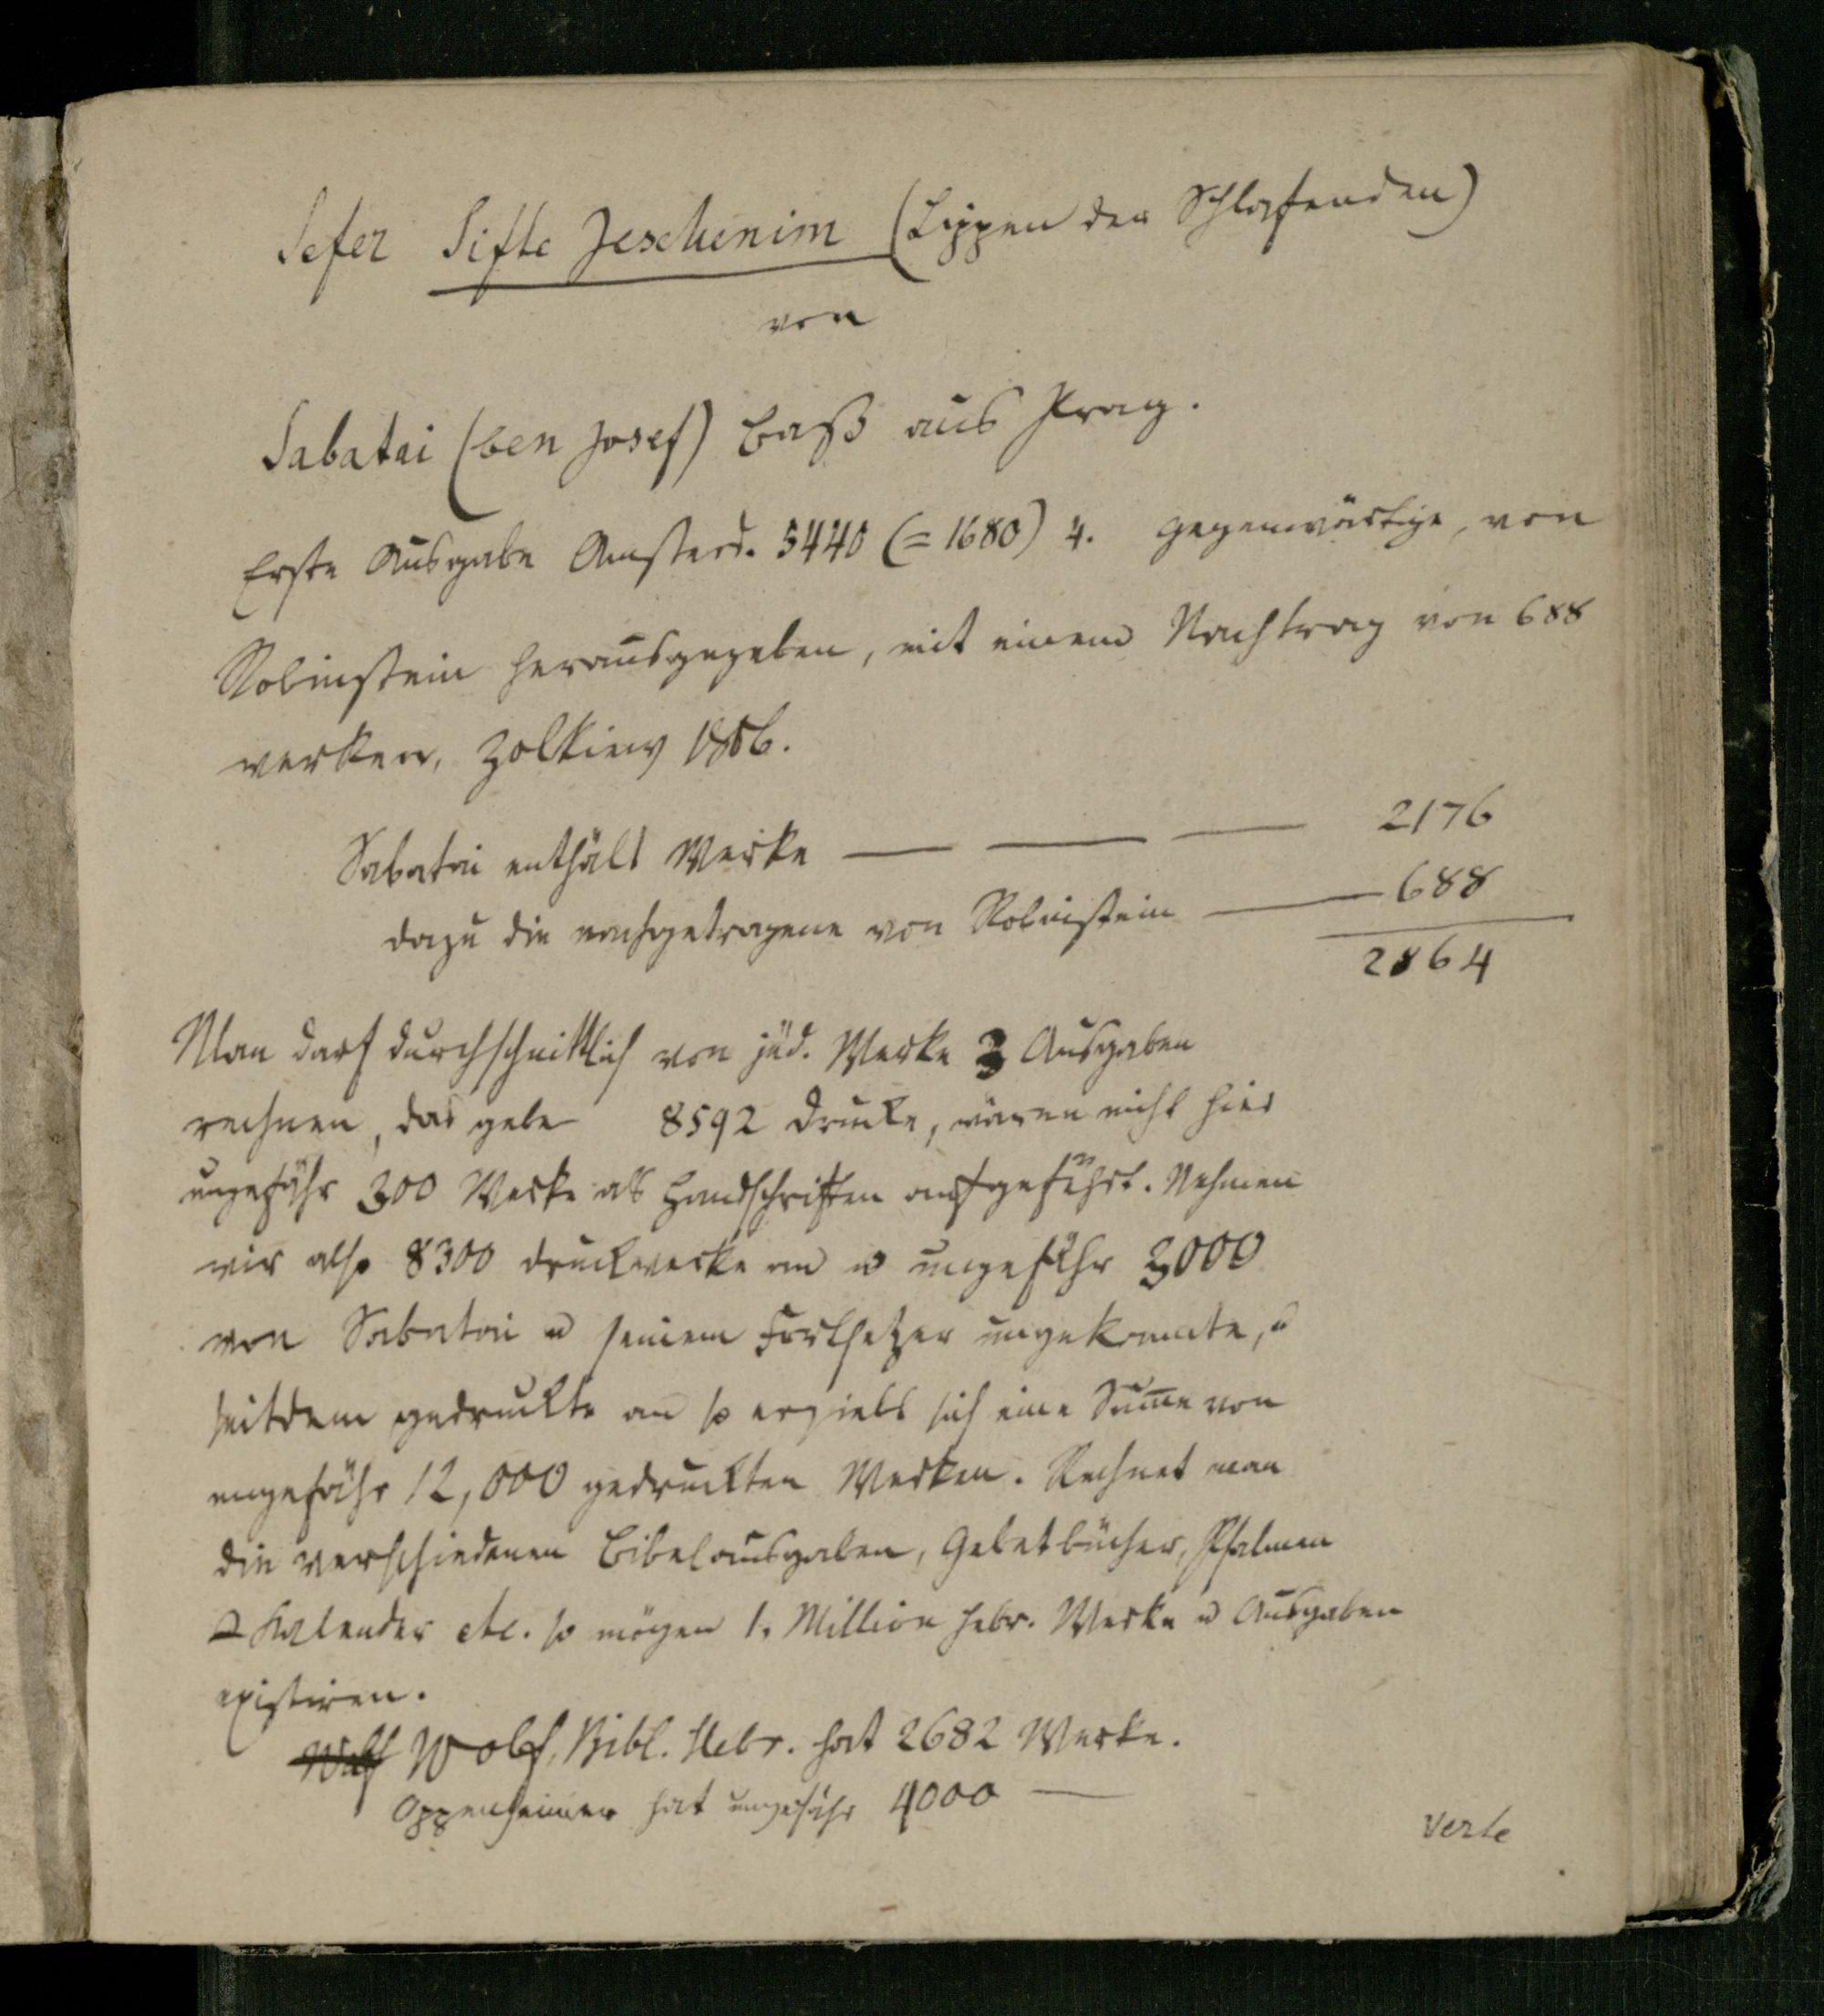 Sefer Sifte Jeschenim (Lippen der Schlafenden)
von
Sabatai (ben Josef) Baß aus Prag.
Erste Ausgabe Amsterd. 5440 (=1680) 4. Gegenwärtige, von
Robinstein herausgegeben, mit einem Nachtrag von 688
werken, Zolkiew 1806.
Sabatai enthält Werke — — — 2176
dazu die nachgetragene von Robinstein — 688
2864
Man darf durchschnittlich von jüd. Werke 3 Ausgaben
rechnen, das gebe 8592 Drucke, wären nicht hier
ungefähr 300 Werke als Handschriften aufgeführt. Nehmen
wir also 8300 Druckwerke an u ungefähr 3000
von Sabatai u seinem Fortsetzer ungekannte, u
seitdem gedruckte an so erziels sich eine Sum̄e von
ungefähr 12,000 gedruckten Werken. Rechnet man
die verschiedenen Bibelausgaben, Gebetbücher, Psalmen
Kalender etc. so mögen 1. Million hebr. Werke u Ausgaben
existiren.
Wolf, Bibl. Hebr. hat 2682 Werke.
Oppenheimer hat ungefähr 4000 —
Verte